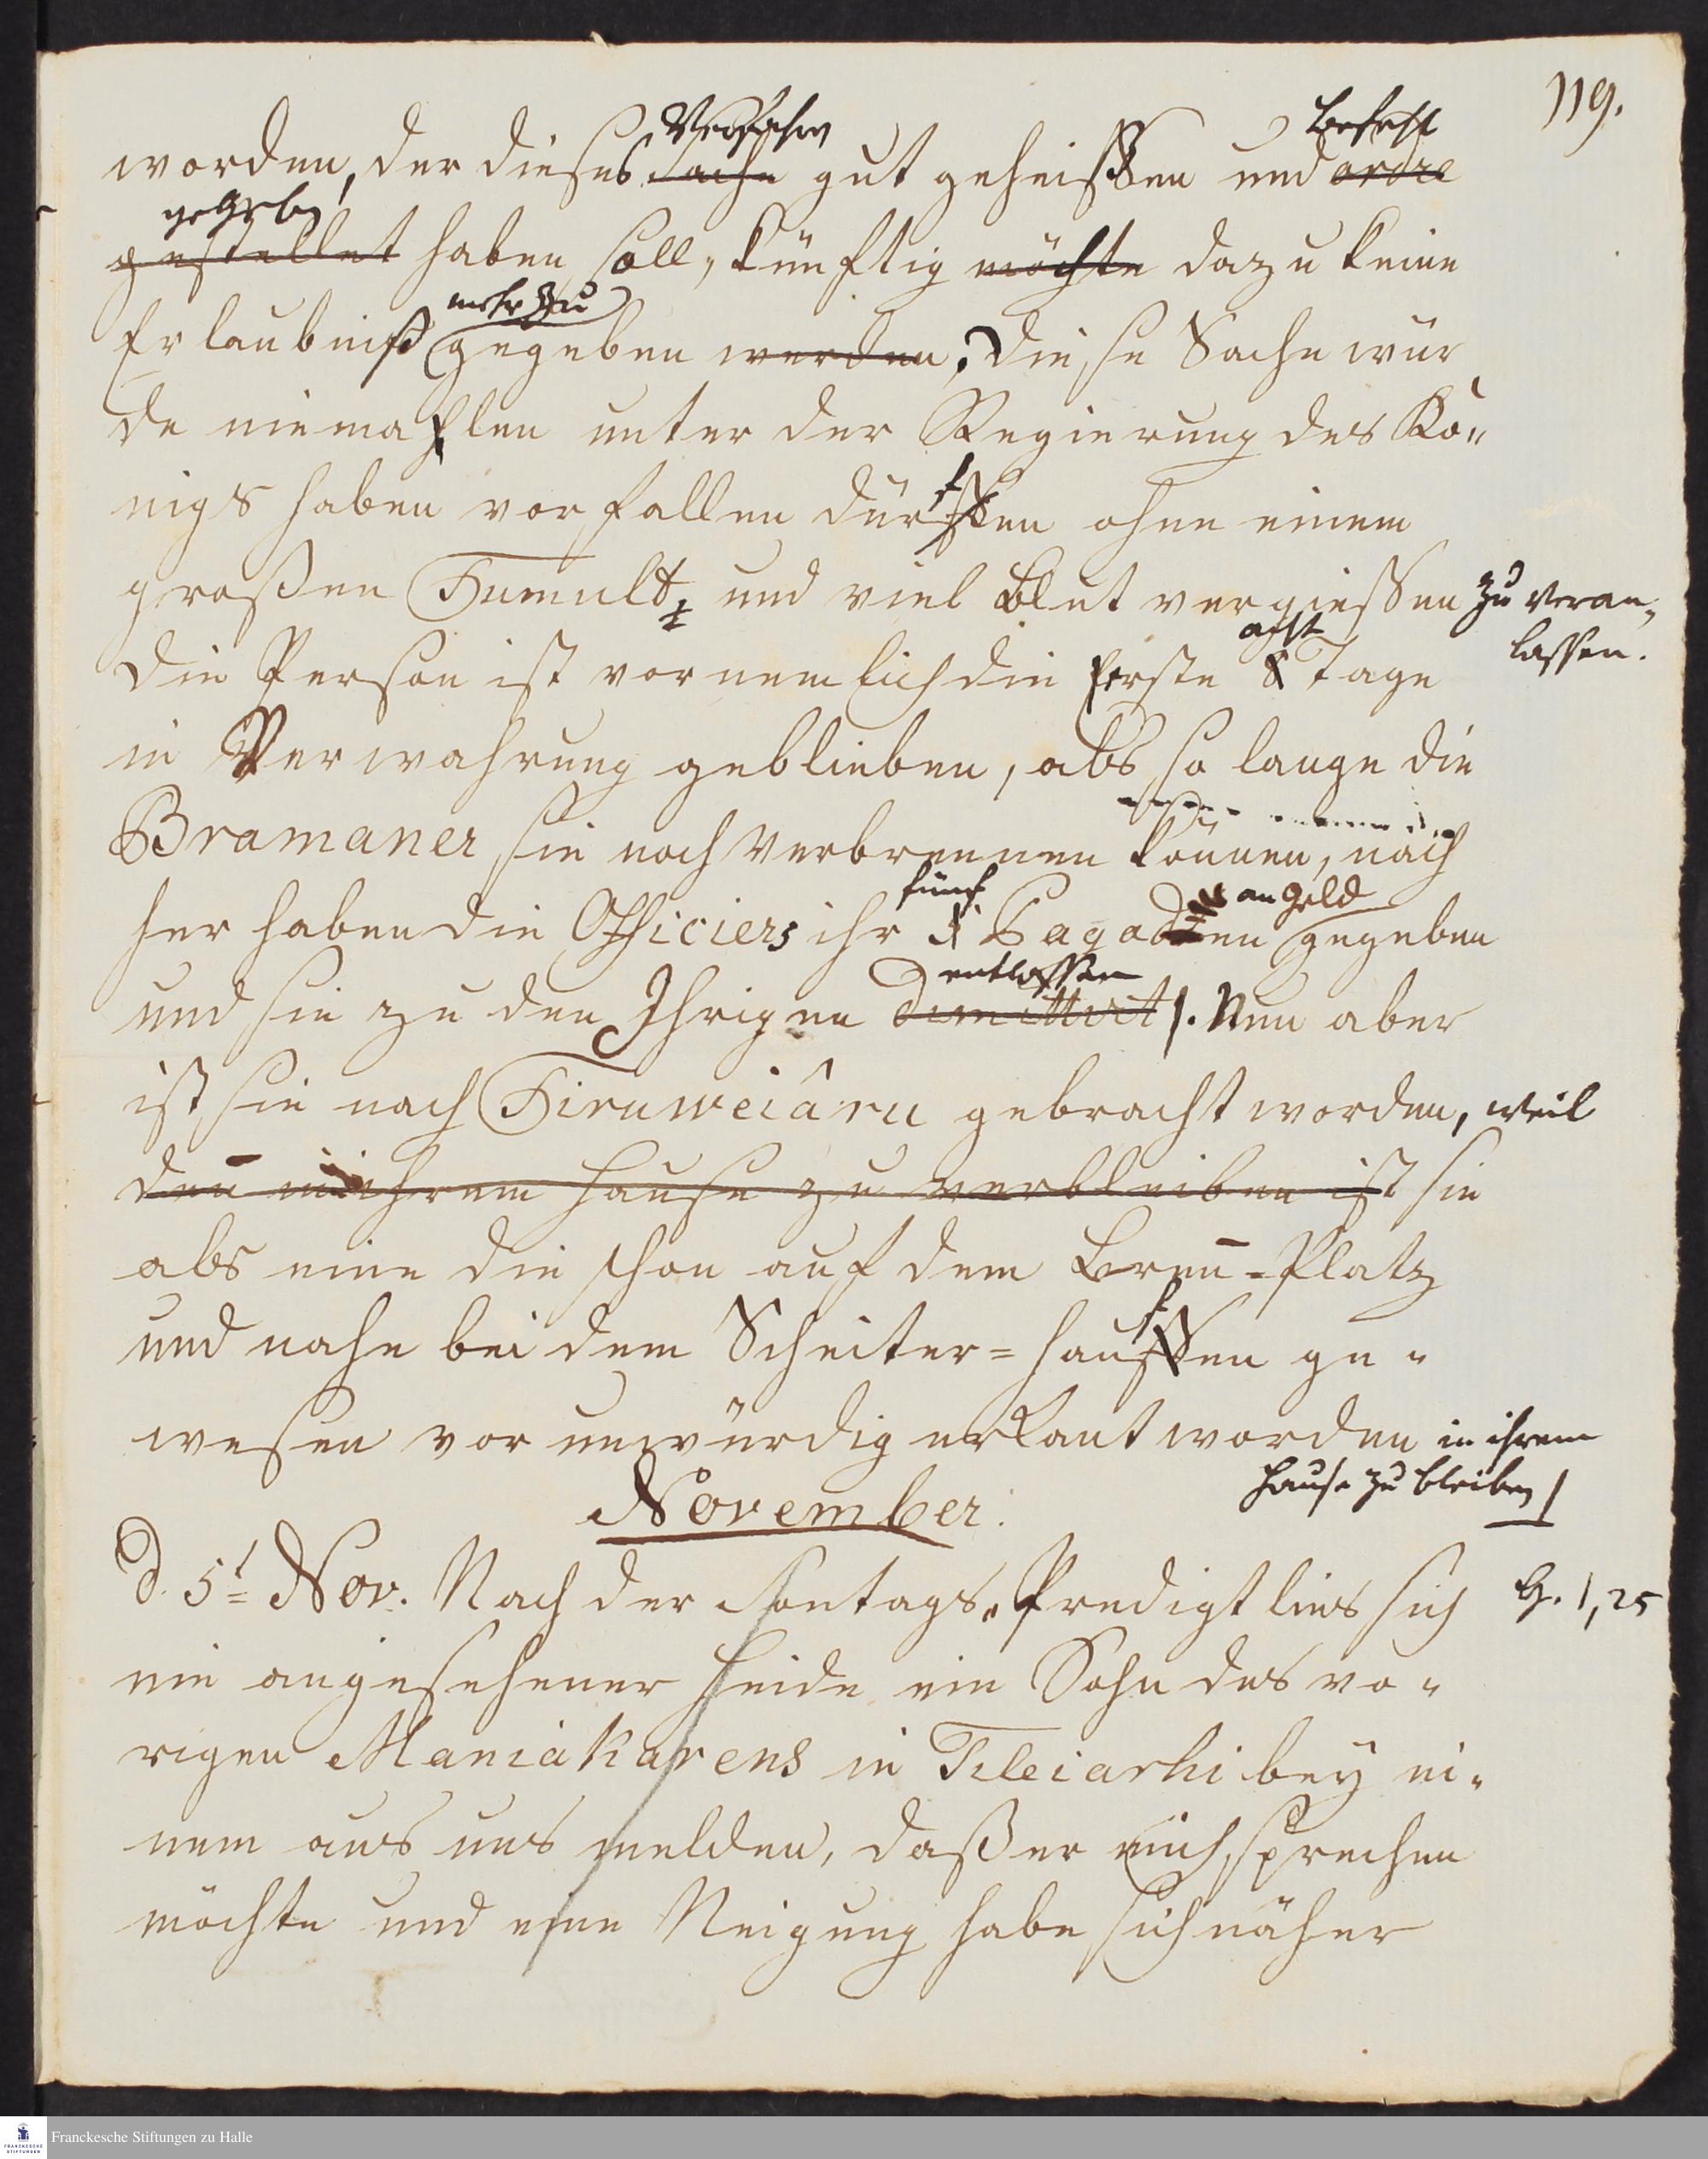 119.
worden, der dieses ~~Sache~~ Verfahren gut geheissen und ~~ordre~~ Befehl
~~gestellet~~ gegeben haben soll, künftig ~~möchte~~ dazu keine
Erlaubniß mehr zu gegeben ~~werden~~, diese Sache wür
de niemahlen unter der Regierung des Kö„
nigs haben vorfallen dürffen ohne einem
großen Tumult, und viel Blut vergiessen zu veran„
lassen.
die Person ist vornemlich die erste acht Tage
in Verwahrung geblieben, als so lange die
Bramaner sie noch verbrennen können, nach
her haben die Officiers ihr fünf Pagoden an Geld gegeben
und sie zu den Ihrigen ~~dimittirt~~ entlassen. Nun aber
ist sie nach Tiruweiâru gebracht worden, weil
~~den̄ in ihrem Hause zu verbleiben ist~~ sie
als eine die schon auf dem Bren̄=Platz
und nahe bei dem Scheiter=hauffen ge„
wesen vor unwürdig erkant worden in ihrem
Hause zu bleiben
November.
d. 5t Nov. Nach der Sontags„Predigt lies sich
G. 1,25
ein angesehener Heide ein Sohn des vo„
rigen Maniakarens in Tileiarhi bey ei„
nem aus uns melden, daß er mich sprechen
möchte und eine Neigung habe sich näher
Franckesche Stiftungen zu Halle
FRANCKESCHE STIFTUNGEN